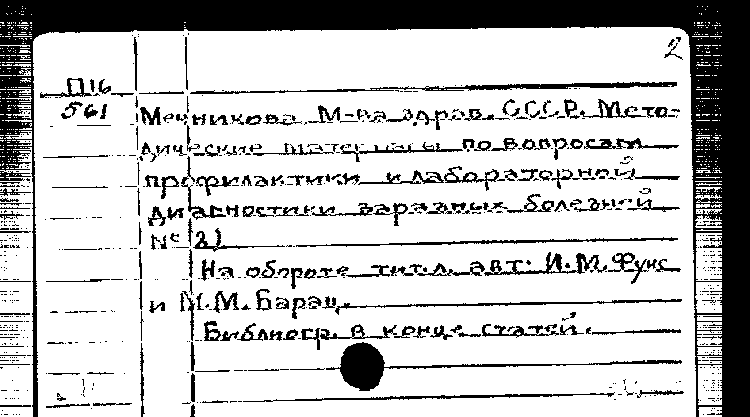 2
П16
561
Мечникова М-ва здрав. СССР. Мето-
дические материалы по вопросам
профилактики и лабораторной
диагностики заразных болезней
№ 2)
На обороте тит.л. авт: И.М. Фукс
и М.М. Барац.
Библиогр. в конце статей.